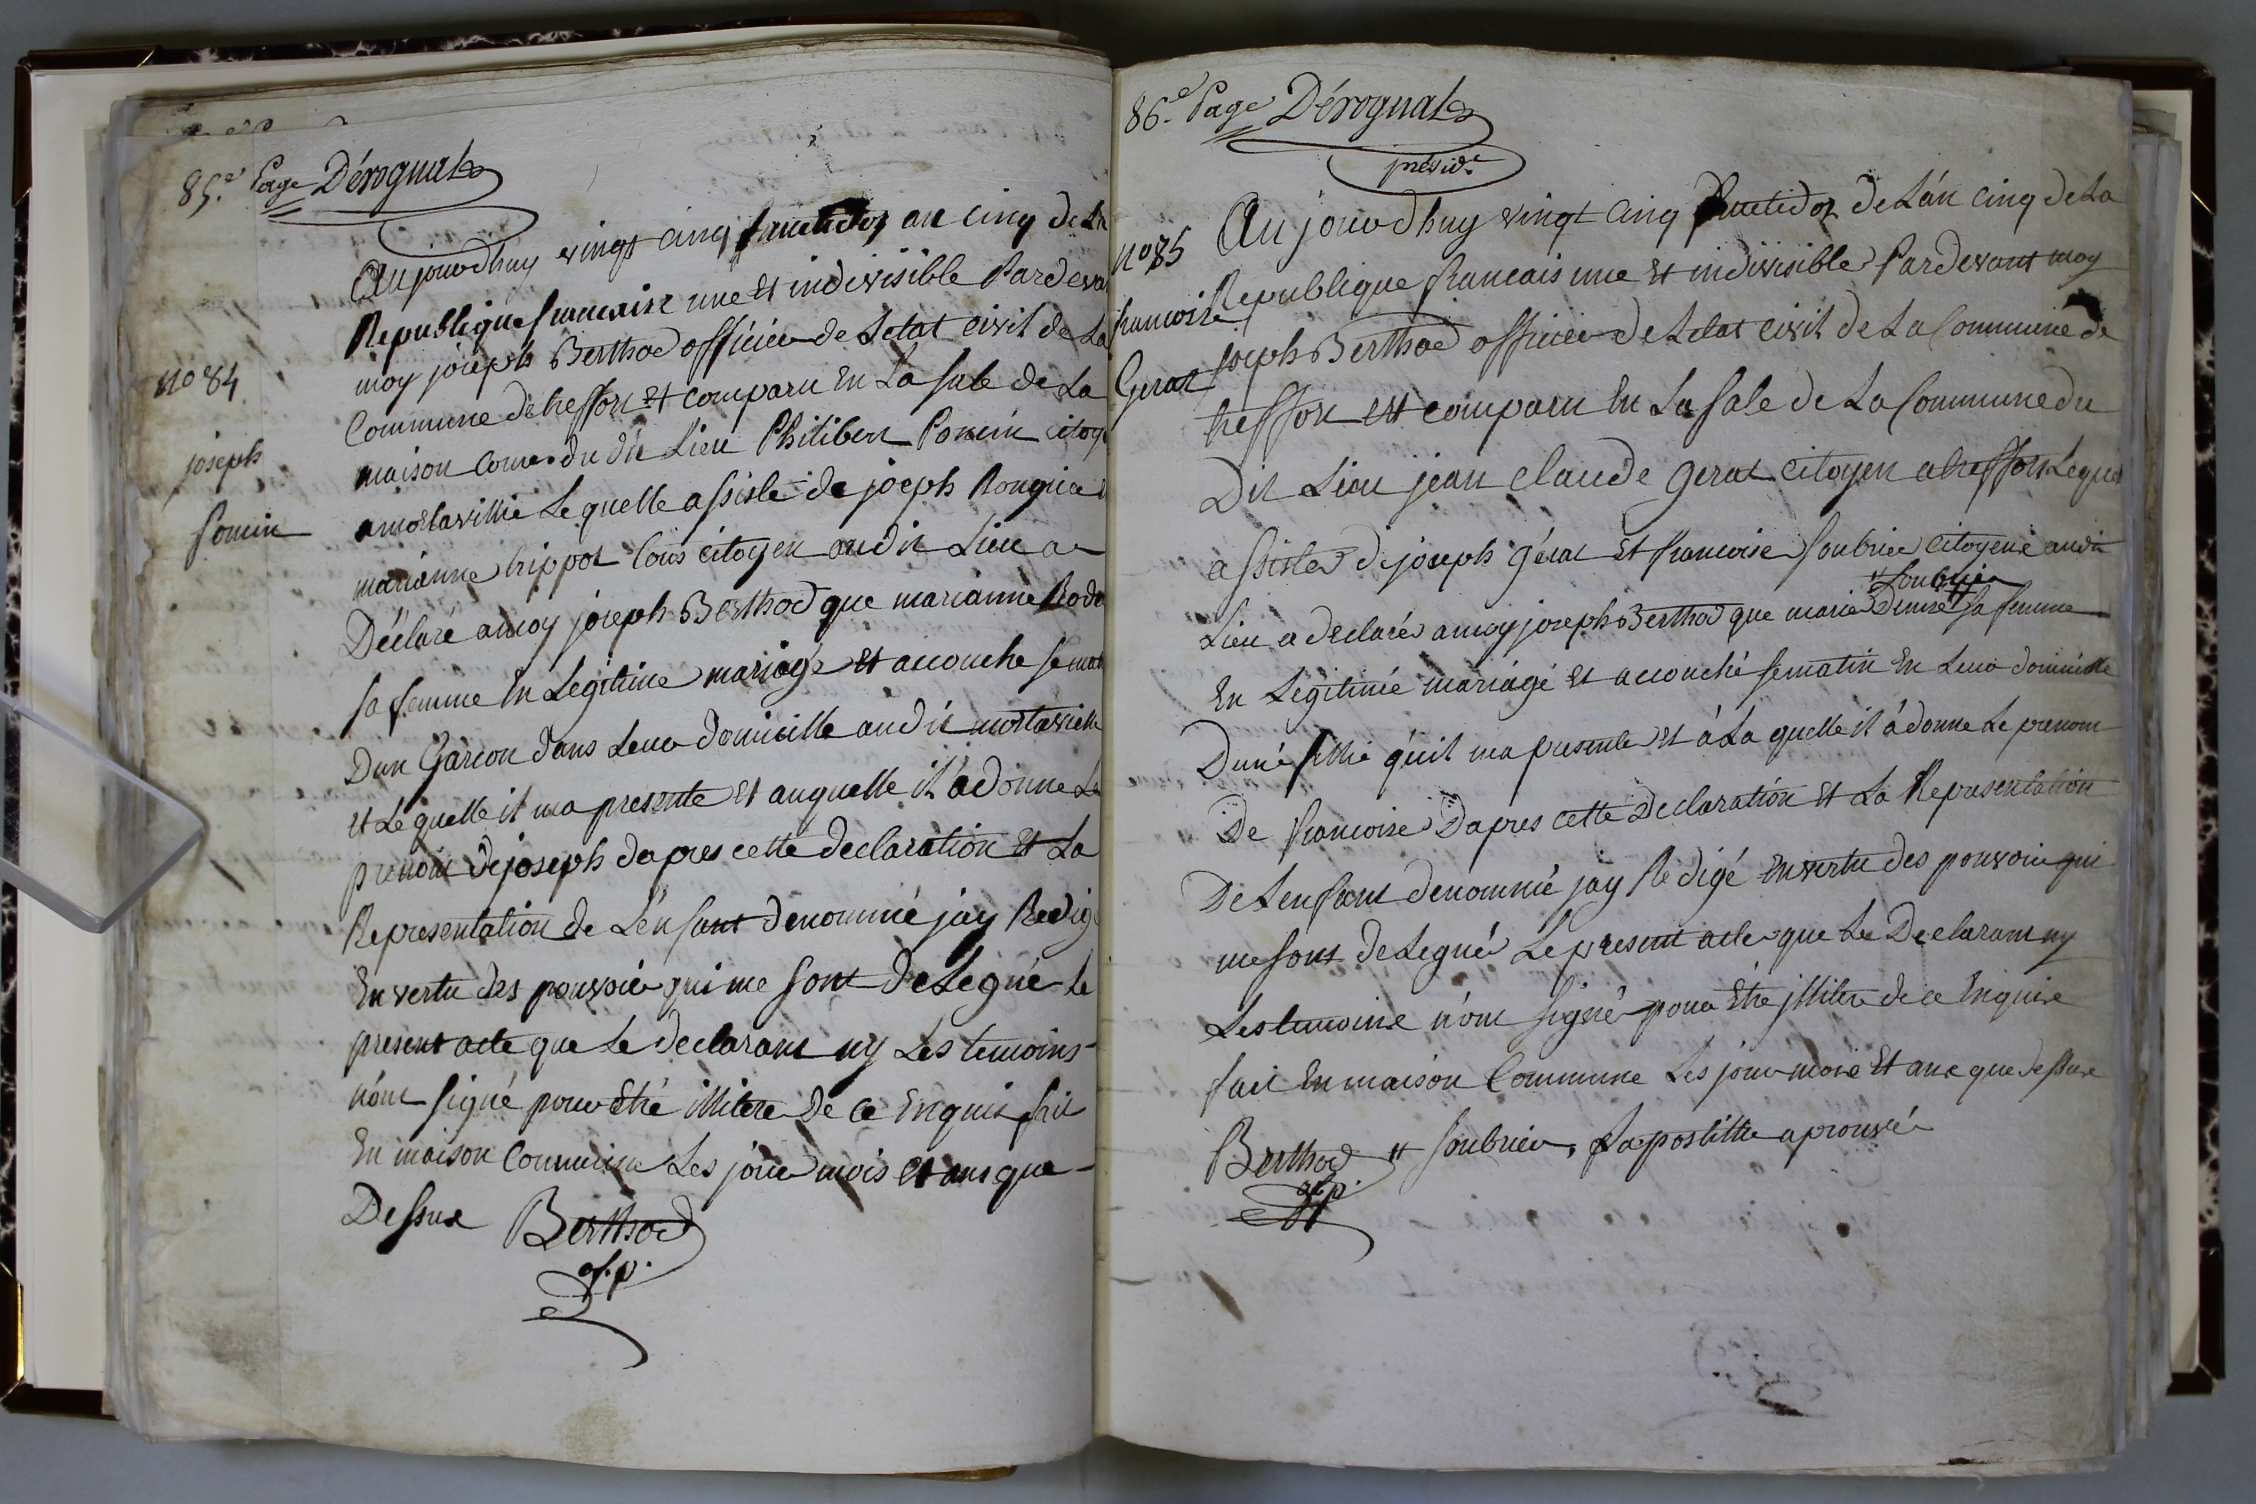 85.e Page Dérognat
Aujourdhuy vingt cinq fructidor an cinq de La
Republique francaise une et indivisible Pardeva
moy joseph Berthod officier de Letat civil de La
Commune de treffort et comparu en La sale de La
maison Comne du dit Lieu Philibert Ponin citoy
amortavillie Lequelle assisté de joseph
marianne trippot tous citoyen audit Lieu a
Déclaré amoy joseph Berthod que marianne Rode
sa femme en Legitime mariage et accouché se mat
Dun Garcon dans Leur domicille audit mortaville
et Lequelle il ma presente et auquelle il a donne Le
prenom de joseph dapres cette declaration et La
Representation de Lenfant denommé jay Redigé
En vertu des pouvoir qui me sont deLegué le
present acte que Le declarant ny Les temoins
nont signé pour etré illitere de ce Enquis fait
En maison Commune Les jour mois et ans que
Dessus Berthod
of.p.
no 84
joseph
86.e Page Dérognat
présidt
no 85
francoise
Gerat
Aujourdhuy vingt cinq fructidor de Lan cinq de La
Republique francais une et indivisible Pardevant moy
joseph Berthod officier de Letat civil de La Commune de
treffort est comparu En La sale de La Commune du
Dit Lieu jean claude gerat citoyen a treffort Lequel
assister de joseph gérat et francoise soubrier citoyene audit
" soubrier
Lieu a declaré amoy joseph Berthod que marie Denise " sa femme
En Legitimé mariagé et accouché se matin En Leur domicille
Duné fillie quil ma presente et à La quelle il à donne Le prenom
De francoise Dapres cette Declaration et La Representation
De Lenfant denommé jay Redigé en vertu des pouvoir qui
me sont deLegué Le present acte que Le Declarant ny
Les temoins nont signé pour Etre jllitere de ce Enquise
fait En maison Commune Les jour mois Et ans que dessus
Berthod " soubrier, Lapostille aprouvé
of.p.